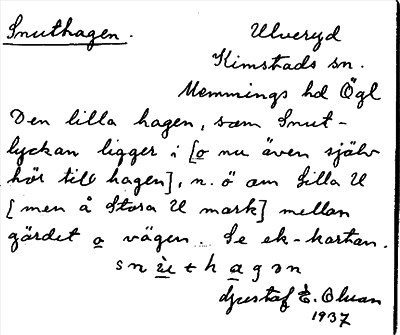 Snuthagen.
Ulveryd
Kimstads sn.
Memmings hd Ögl
Den lilla hagen, som Snut-
lyckan ligger i [o nu även själv
hör till hagen], n. ö om Lilla U
[men å Stora U mark] mellan
gärdet o vägen. Se ek-kartan.
snùt hagən
Gustaf E. Olsson
1937